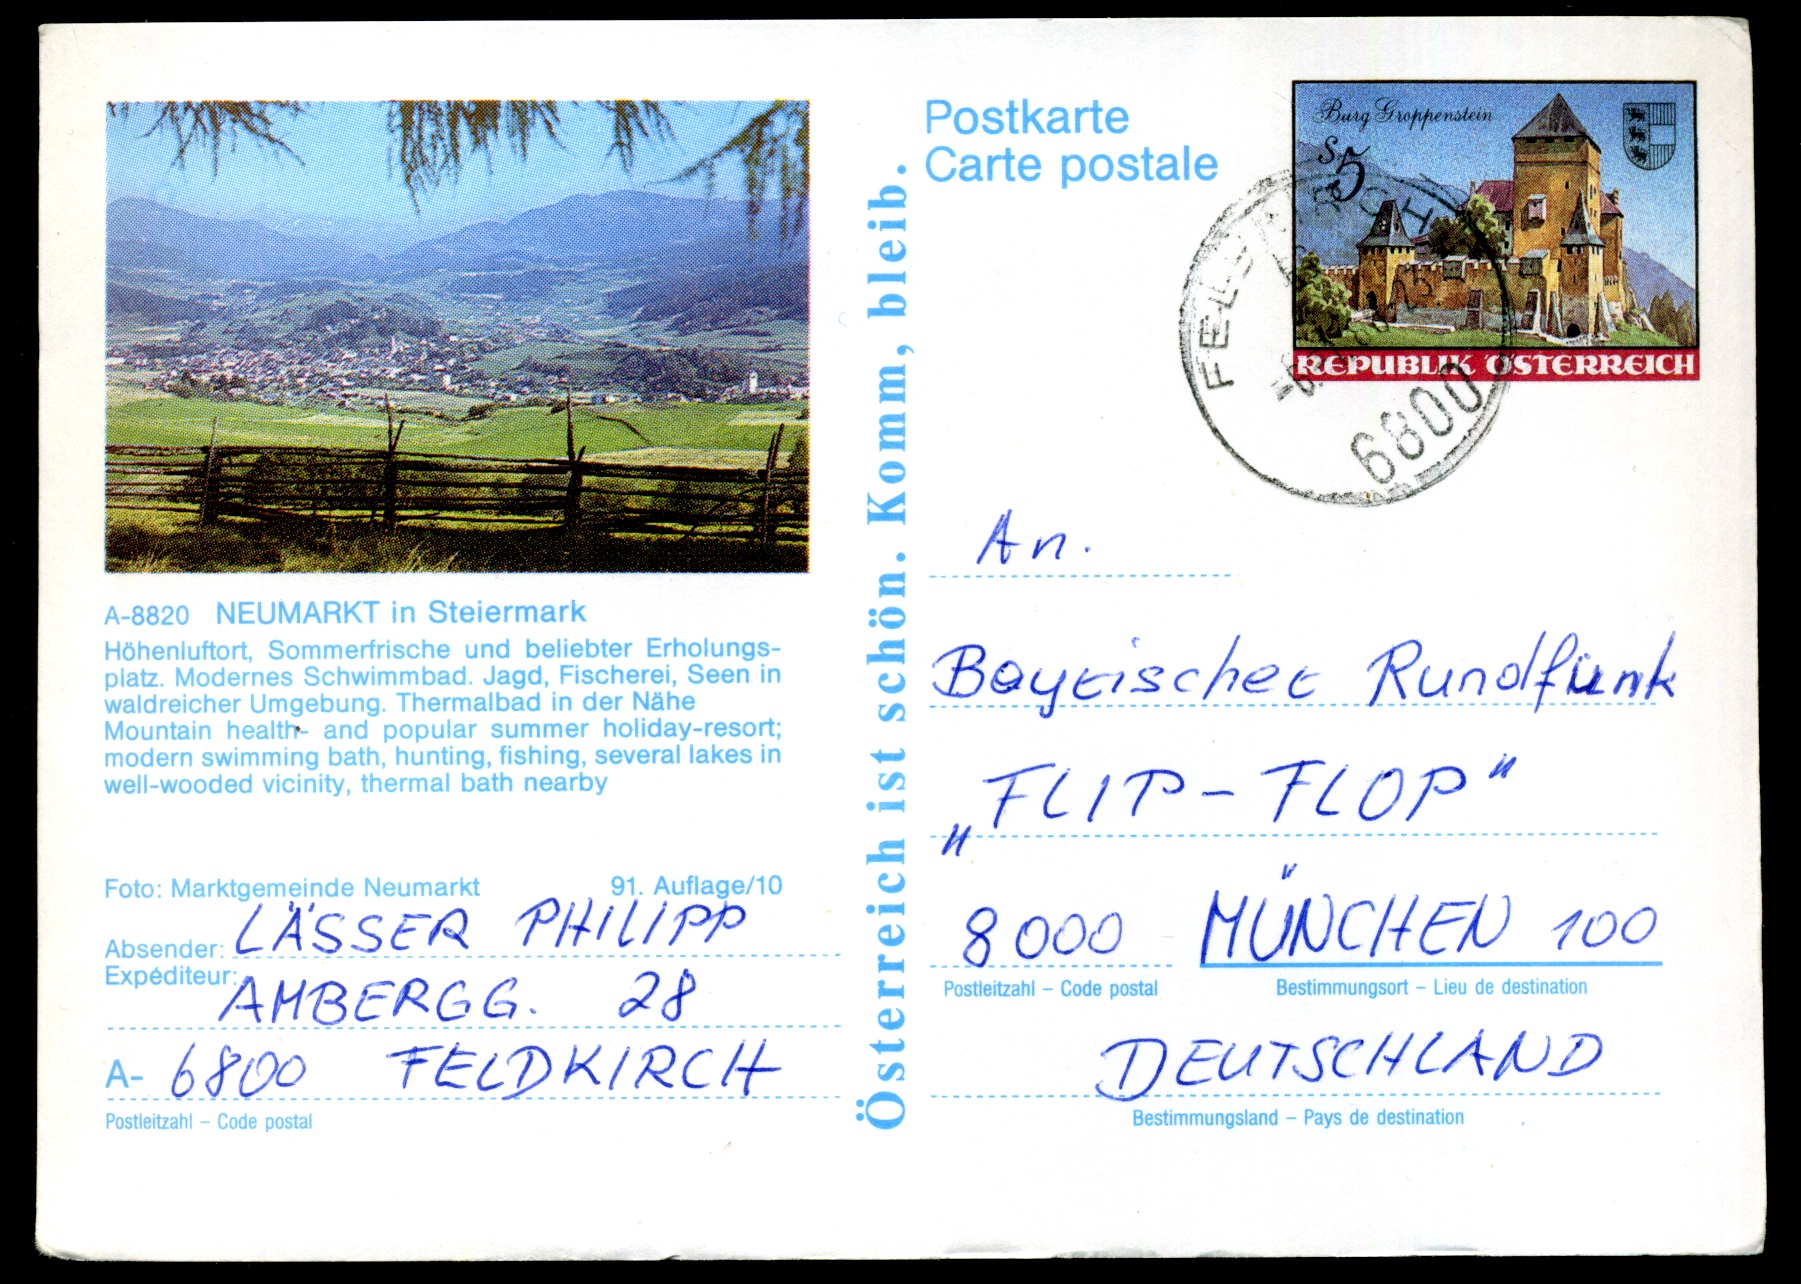 Postkarte
Carte postale
Burg Groppenstein
S5
REPUBLIK ÖSTERREICH
6800
A-8820 NEUMARKT in Steiermark
Höhenluftort, Sommerfrische und beliebter Erholungs-
platz. Modernes Schwimmbad. Jagd, Fischerei, Seen in
waldreicher Umgebung. Thermalbad in der Nähe
Mountain health- and popular summer holiday-resort;
modern swimming bath, hunting, fishing, several lakes in
well-wooded vicinity, thermal bath nearby
Foto: Marktgemeinde Neumarkt 91. Auflage/10
Absender: LÄSSER PHILIPP
Expéditeur: AMBERGG. 28
A- 6800 FELDKIRCH
Postleitzahl – Code postal
Österreich ist schön. Komm, bleib.
An.
Bayrischer Rundfunk
„FLIP-FLOP"
8000 MÜNCHEN 100
Postleitzahl – Code postal Bestimmungsort – Lieu de destination
DEUTSCHLAND
Bestimmungsland – Pays de destination